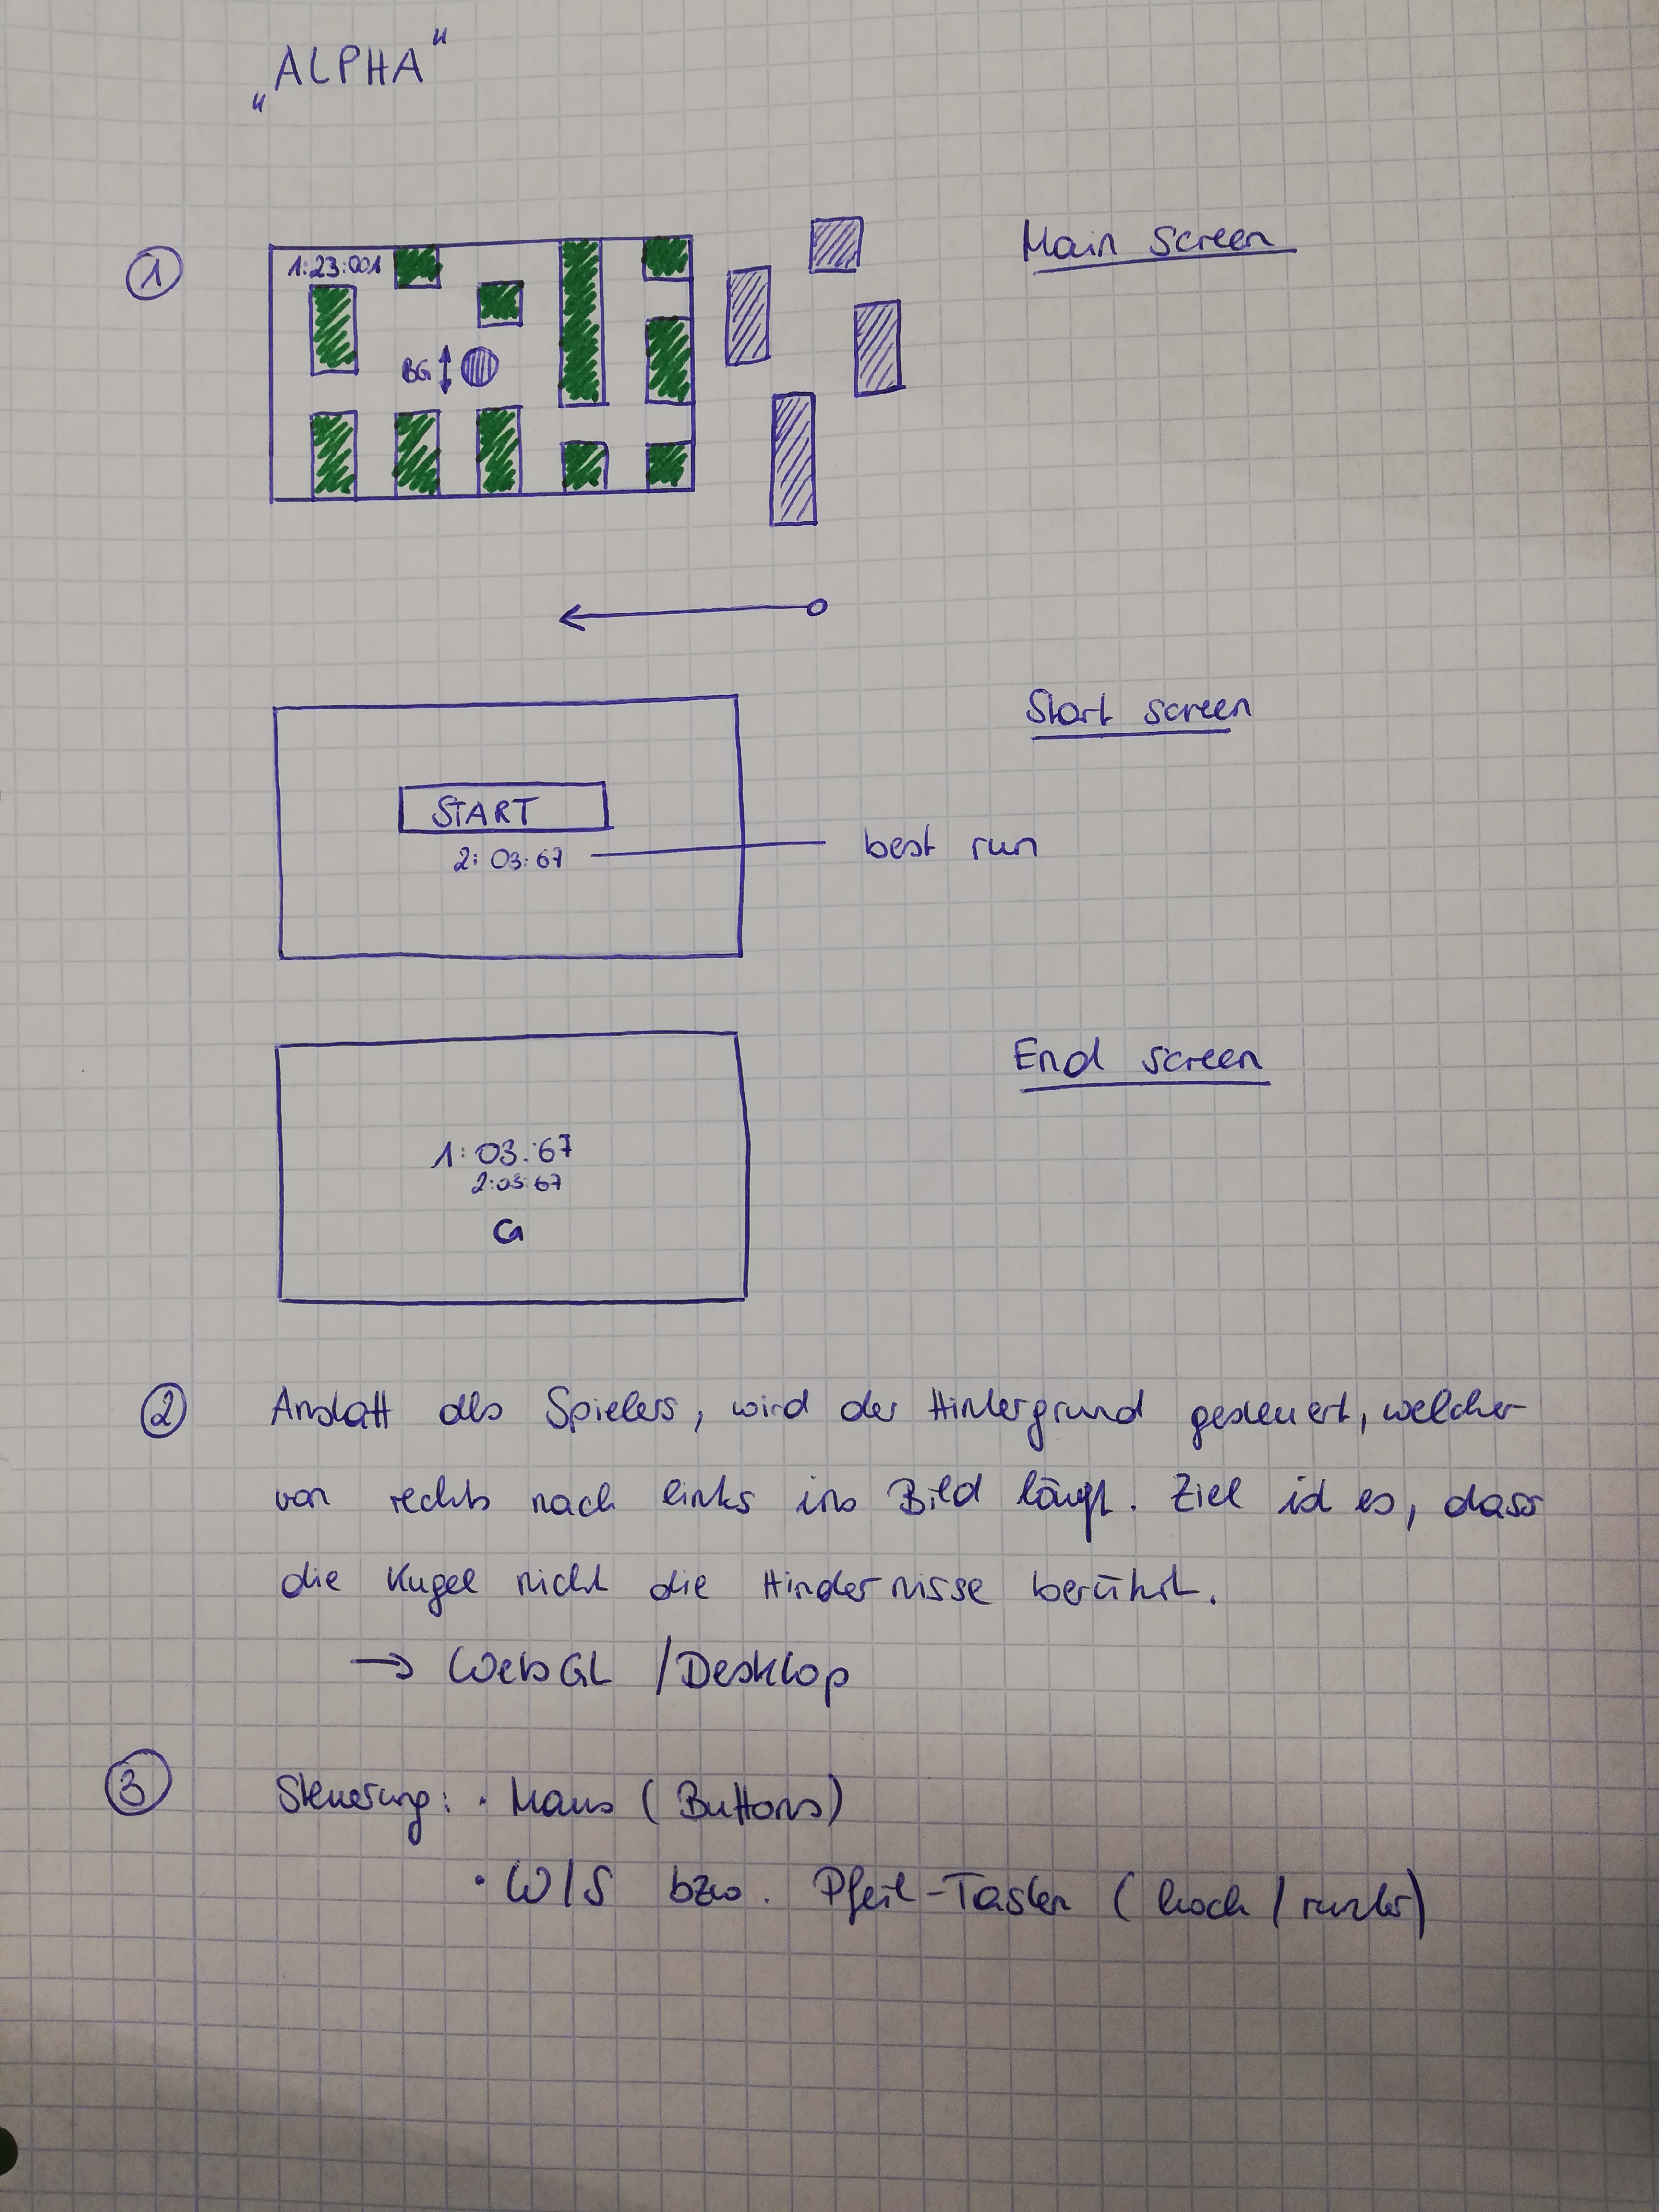 „ALPHA“
① Main Screen
1:23:001
BG
Start screen
START
2:03:67 best run
End screen
1:03:67
2:03:67
② Anstatt des Spielers, wird der Hintergrund gesteuert, welcher
von rechts nach links ins Bild läuft. Ziel ist es, dass
die Kugel nicht die Hindernisse berührt.
→ WebGL / Desktop
③ Steuerung: • Maus (Buttons)
• W/S bzw. Pfeil-Tasten (hoch / runter)